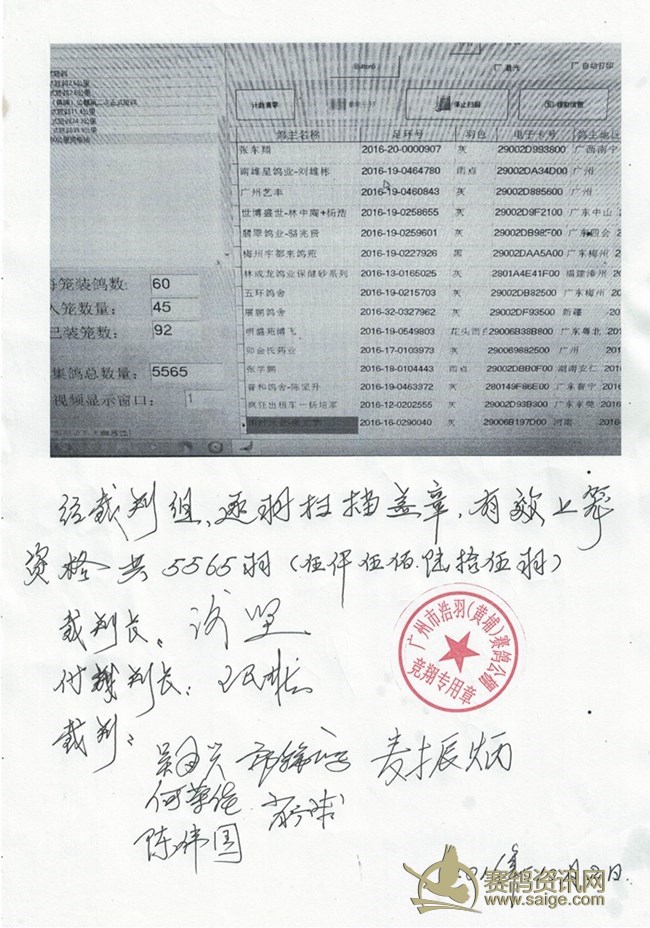 自动打印
停止扫描
鸽主名称 足环号 羽色 电子卡号 鸽主地区
张东翔 2016-20-0000907 灰 29002D993800 广西南宁
南雄星鸽业-刘雄彬 2016-19-0464780 雨点 29002DA34D00 广州
广州艺丰 2016-19-0460843 灰 29002D885600 广州
世博盛世-林中庵+杨浩 2016-19-0258655 灰 29002D9F2100 广东中山
翡翠鸽业-骆光贤 2016-19-0259601 灰 29002DB98F00 广东四会
梅州宇都来鸽苑 2016-19-0227926 黑 29002DAA5A00 广东梅州
林成龙鸽业保健砂系列 2016-13-0165025 灰 2801A4E41F00 福建漳州
五环鸽舍 2016-19-0215703 灰 29002DB82500 广东梅州
展鹏鸽舍 2016-32-0327962 灰 29002DF93500 新疆
明盛苑博飞 2016-19-0549803 花头雨白 29006B38B800 广东粤北
帅金氏药业 2016-17-0103973 灰 290069882500 广州
张学鹏 2016-18-0104443 雨点 29002DBB0F00 湖南安仁
普和鸽舍-陈坚升 2016-19-0463372 灰 280149F86E00 广东普宁
疯狂出租车-杨培军 2016-12-0202555 灰 29002D93B300 广东东莞
2016-16-0290040 灰 29006B197D00 河南
每笼装鸽数: 60
入笼数量: 45
已装笼数: 92
集鸽总数量: 5565
视频显示窗口: 1
经裁判组、逐羽扫描盖章,有效上笼
资格共5565羽(伍仟伍佰陆拾伍羽)
裁判长:
付裁判长:
裁判:
麦振炳
何荣佳
陈伟国
广州市浩羽(黄埔)赛鸽公棚
竞翔专用章
赛鸽资讯网
www.saige.com